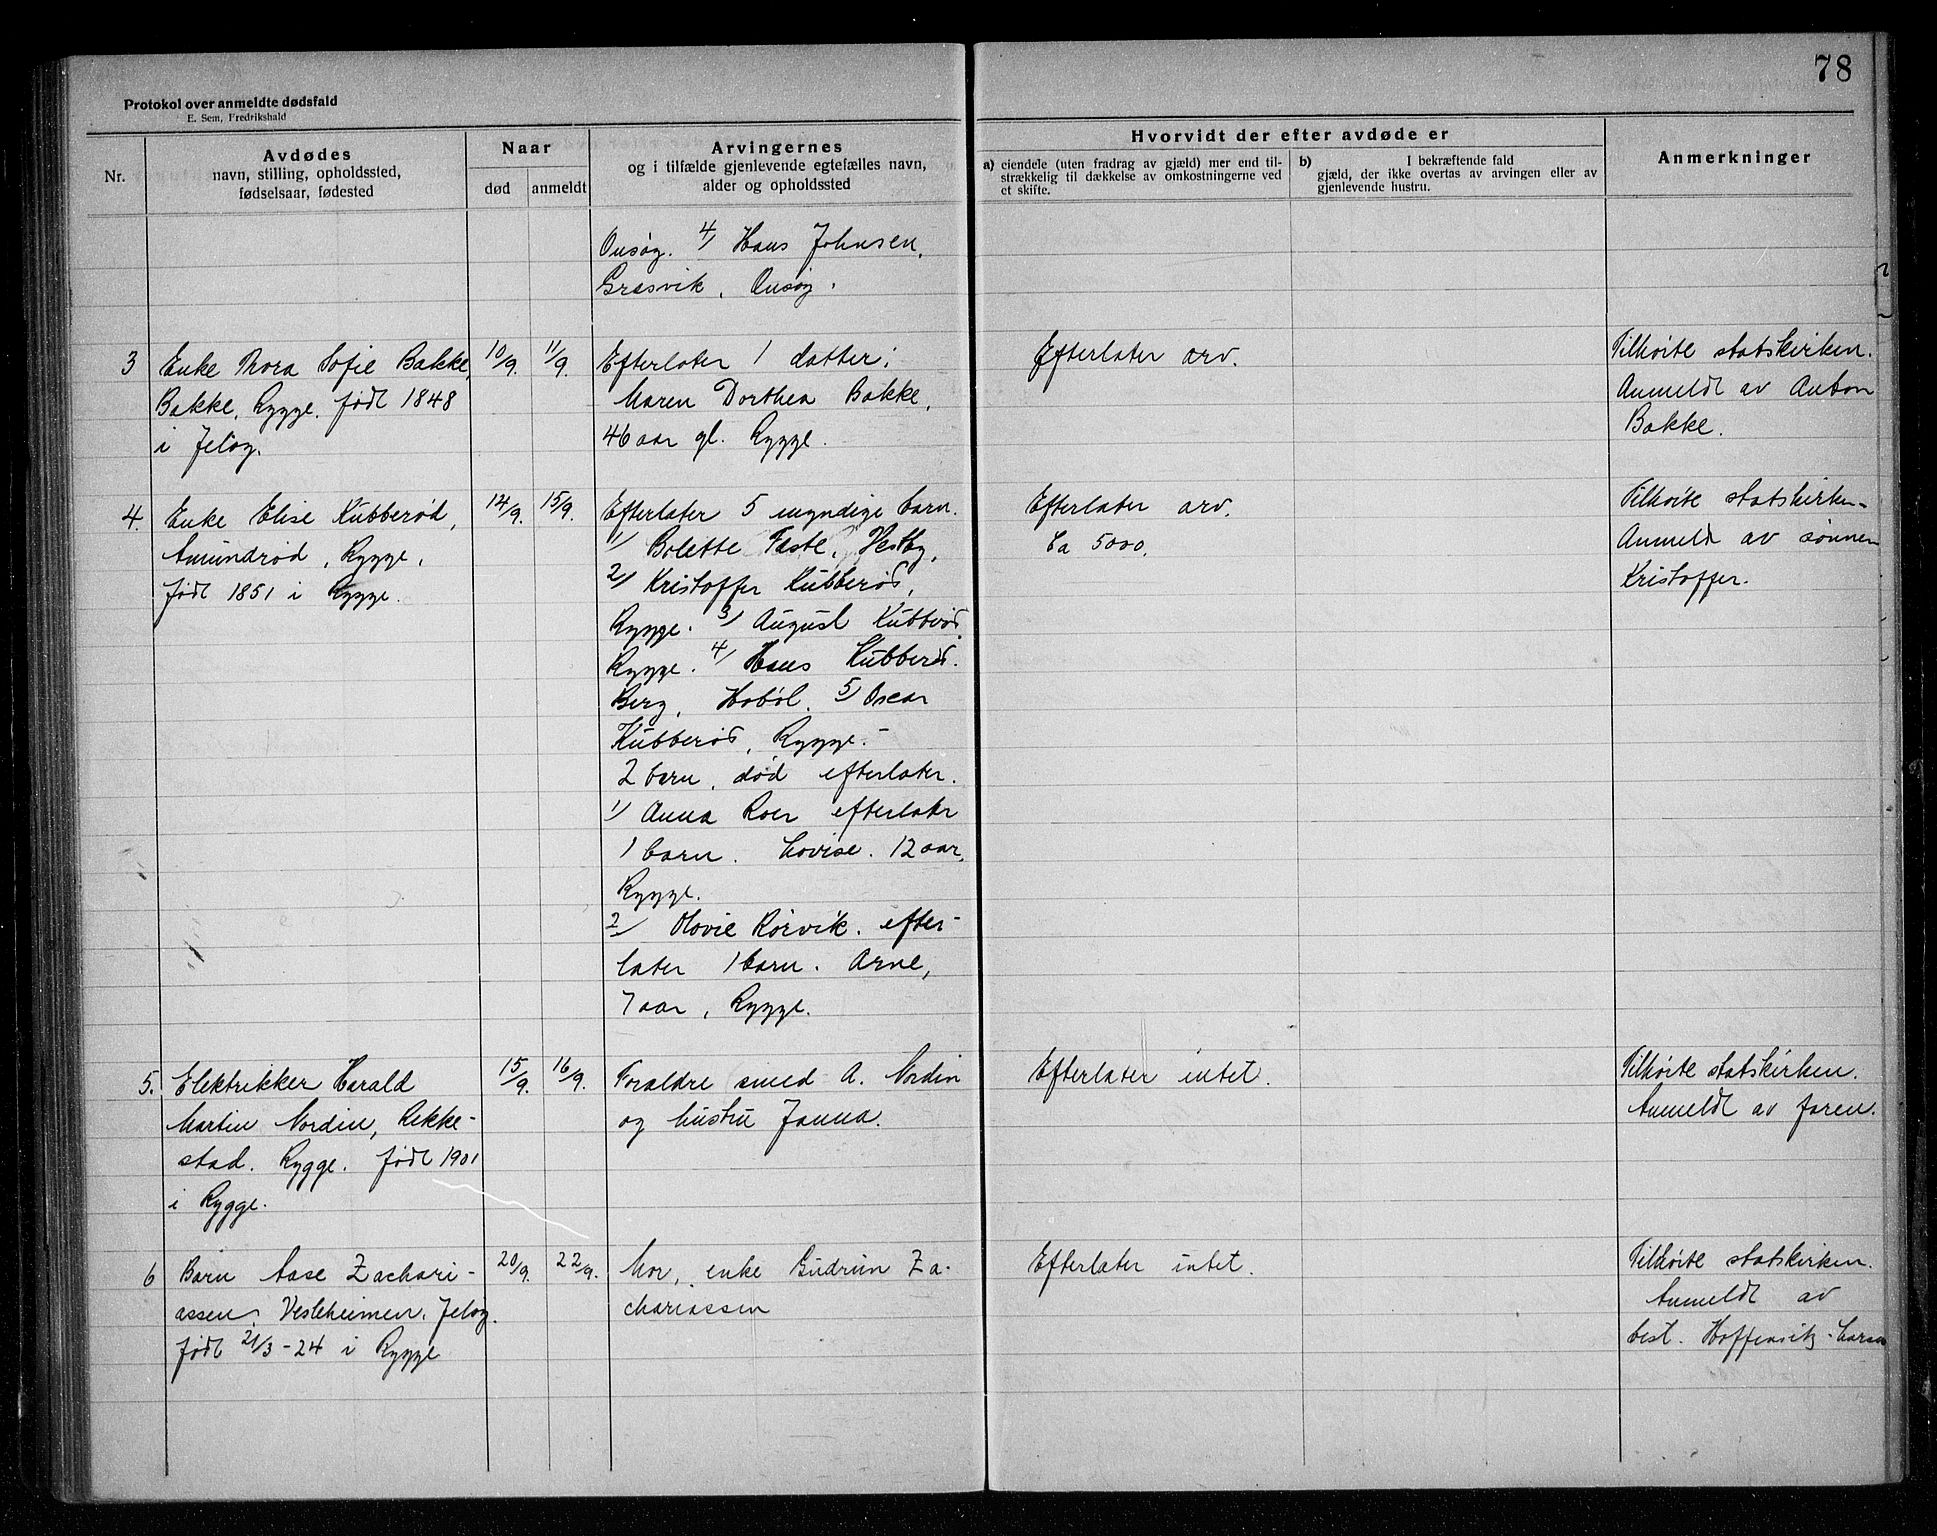 78
Protokol over anmeldte dødsfald
E. Sem, Fredrikshald
Nr.
Avdødes
navn, stilling, opholdssted,
fødselsaar, fødested
Naar
død
anmeldt
Arvingernes
og i tilfælde gjenlevende egtefælles navn,
alder og opholdssted
Hvorvidt der efter avdøde er
a) eiendele (uten fradrag av gjæld) mer end til-
strækkelig til dækkelse av omkostningerne ved
et skifte.
b) I bekræftende fald
gjæld, der ikke overtas av arvingen eller av
gjenlevende hustru.
Anmerkninger
Onsøy. 4/ Hans Johnsen,
Græsvik, Onsøy.
3
Enke Thora Sofie Bakke,
Bakke, Rygge. født 1848
i Jeløy.
10/9.
11/9.
Efterlater 1 datter:
Maren Dorthea Bakke,
46 aar gl. Rygge.
Efterlater arv.
Tilhørte statskirken.
Anmeldt av Anton
Bakke.
4.
Enke Elise Kubberød,
Amundrød, Rygge,
født 1851 i Rygge.
14/9.
15/9.
Efterlater 5 myndige barn.
1/ Bolette Faste, Vestby,
2/ Kristoffer Kubberød,
Rygge. 3/ August Kubberød
Rygge. 4/ Hans Kubberød.
Berg, Hobøl. 5/ Oscar
Kubberød, Rygge.-
2 barn, død efterlater.
1/ Anna Roer efterlater
1 barn. Lovise. 12 aar,
Rygge.
2/ Hovie Rørvik. efter-
later 1 barn. Arne,
7 aar, Rygge.
Efterlater arv.
Ca 5000.
Tilhørte statskirken-
Anmeldt av sønnen
Kristoffer.
5.
Elektrikker Harald
Martin Nordin, Rekke-
stad. Rygge. født 1901
i Rygge.
15/9.
16/9.
Foraldre smed A. Nordin
og hustru Janna.
Efterlater intet.
Tilhørte statskirken.
Anmeldt av faren.
6
Barn Aase Zachari-
assen, Vesleheimen, Jeløy.
født 21/3-24 i Rygge
20/9.
22/9.
Mor, enke Gudrun Za-
chariassen
Efterlater intet.
Tilhørte statskirken.
Anmeldt av
best.